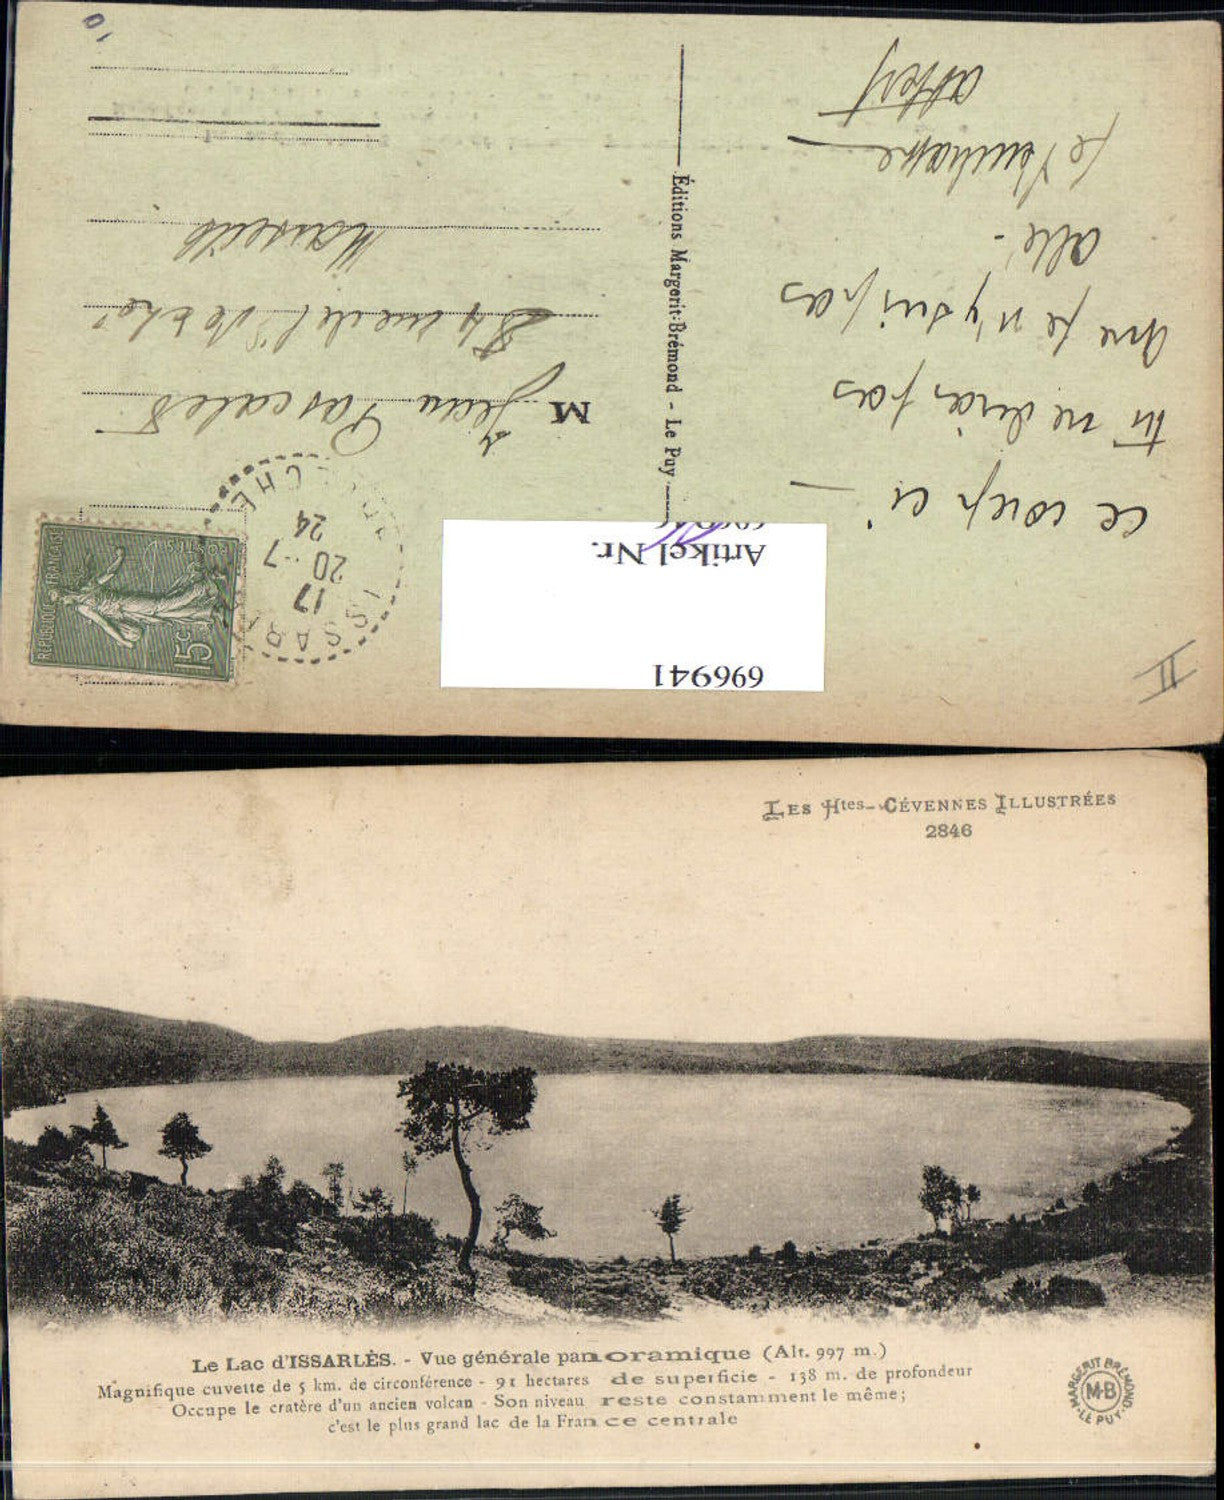 ce coup ci
tu ne diras pas
que je n'y suis pas
allé.
Je
M Jean Pascales
Marseille
Éditions Margerit-Brémond - Le Puy
ISSARLÈS
ARDÈCHE
17
20-7
24
RÉPUBLIQUE FRANÇAISE
POSTES
15c
10
II
Artikel Nr.
696941
LES Htes-CÉVENNES ILLUSTRÉES
2846
Le Lac d'ISSARLÈS. - Vue générale panoramique (Alt. 997 m.)
Magnifique cuvette de 5 km. de circonférence - 91 hectares de superficie - 138 m. de profondeur
Occupe le cratère d'un ancien volcan - Son niveau reste constamment le même;
c'est le plus grand lac de la France centrale
MARGERIT BRÉMOND
M-B
LE PUY